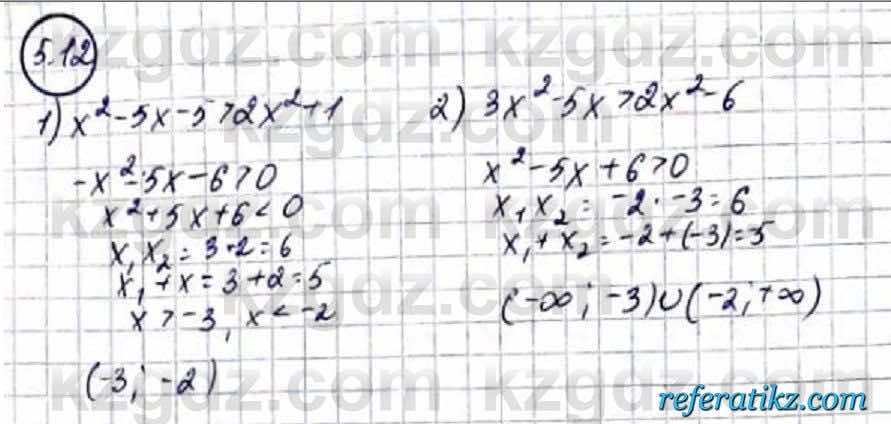 5.12
1) x² - 5x - 5 > 2x² + 1
-x² - 5x - 6 > 0
x² + 5x + 6 < 0
x₁ x₂ = 3 · 2 = 6
x₁ + x = 3 + 2 = 5
x > -3, x < -2
(-3; -2)
2) 3x² - 5x > 2x² - 6
x² - 5x + 6 > 0
x₁ x₂ = -2 · -3 = 6
x₁ + x₂ = -2 + (-3) = 5
(-∞; -3) ∪ (-2; +∞)
kzgdz.com kzgdz.com
kzgdz.com kzgdz.com
kzgdz.com kzgdz.com
kzgdz.com kzgdz.com
referatikz.com